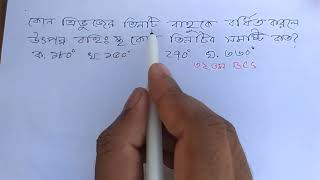 কোন ত্রিভুজের তিনটি বাহুকে বর্ধিত করলে
উৎপন্ন বহিঃস্থ কোণ তিনটির সমষ্টি কত?
ক. ১৮০° খ. ২৭০° ঘ. ৩৬০°
৩২তম BCS